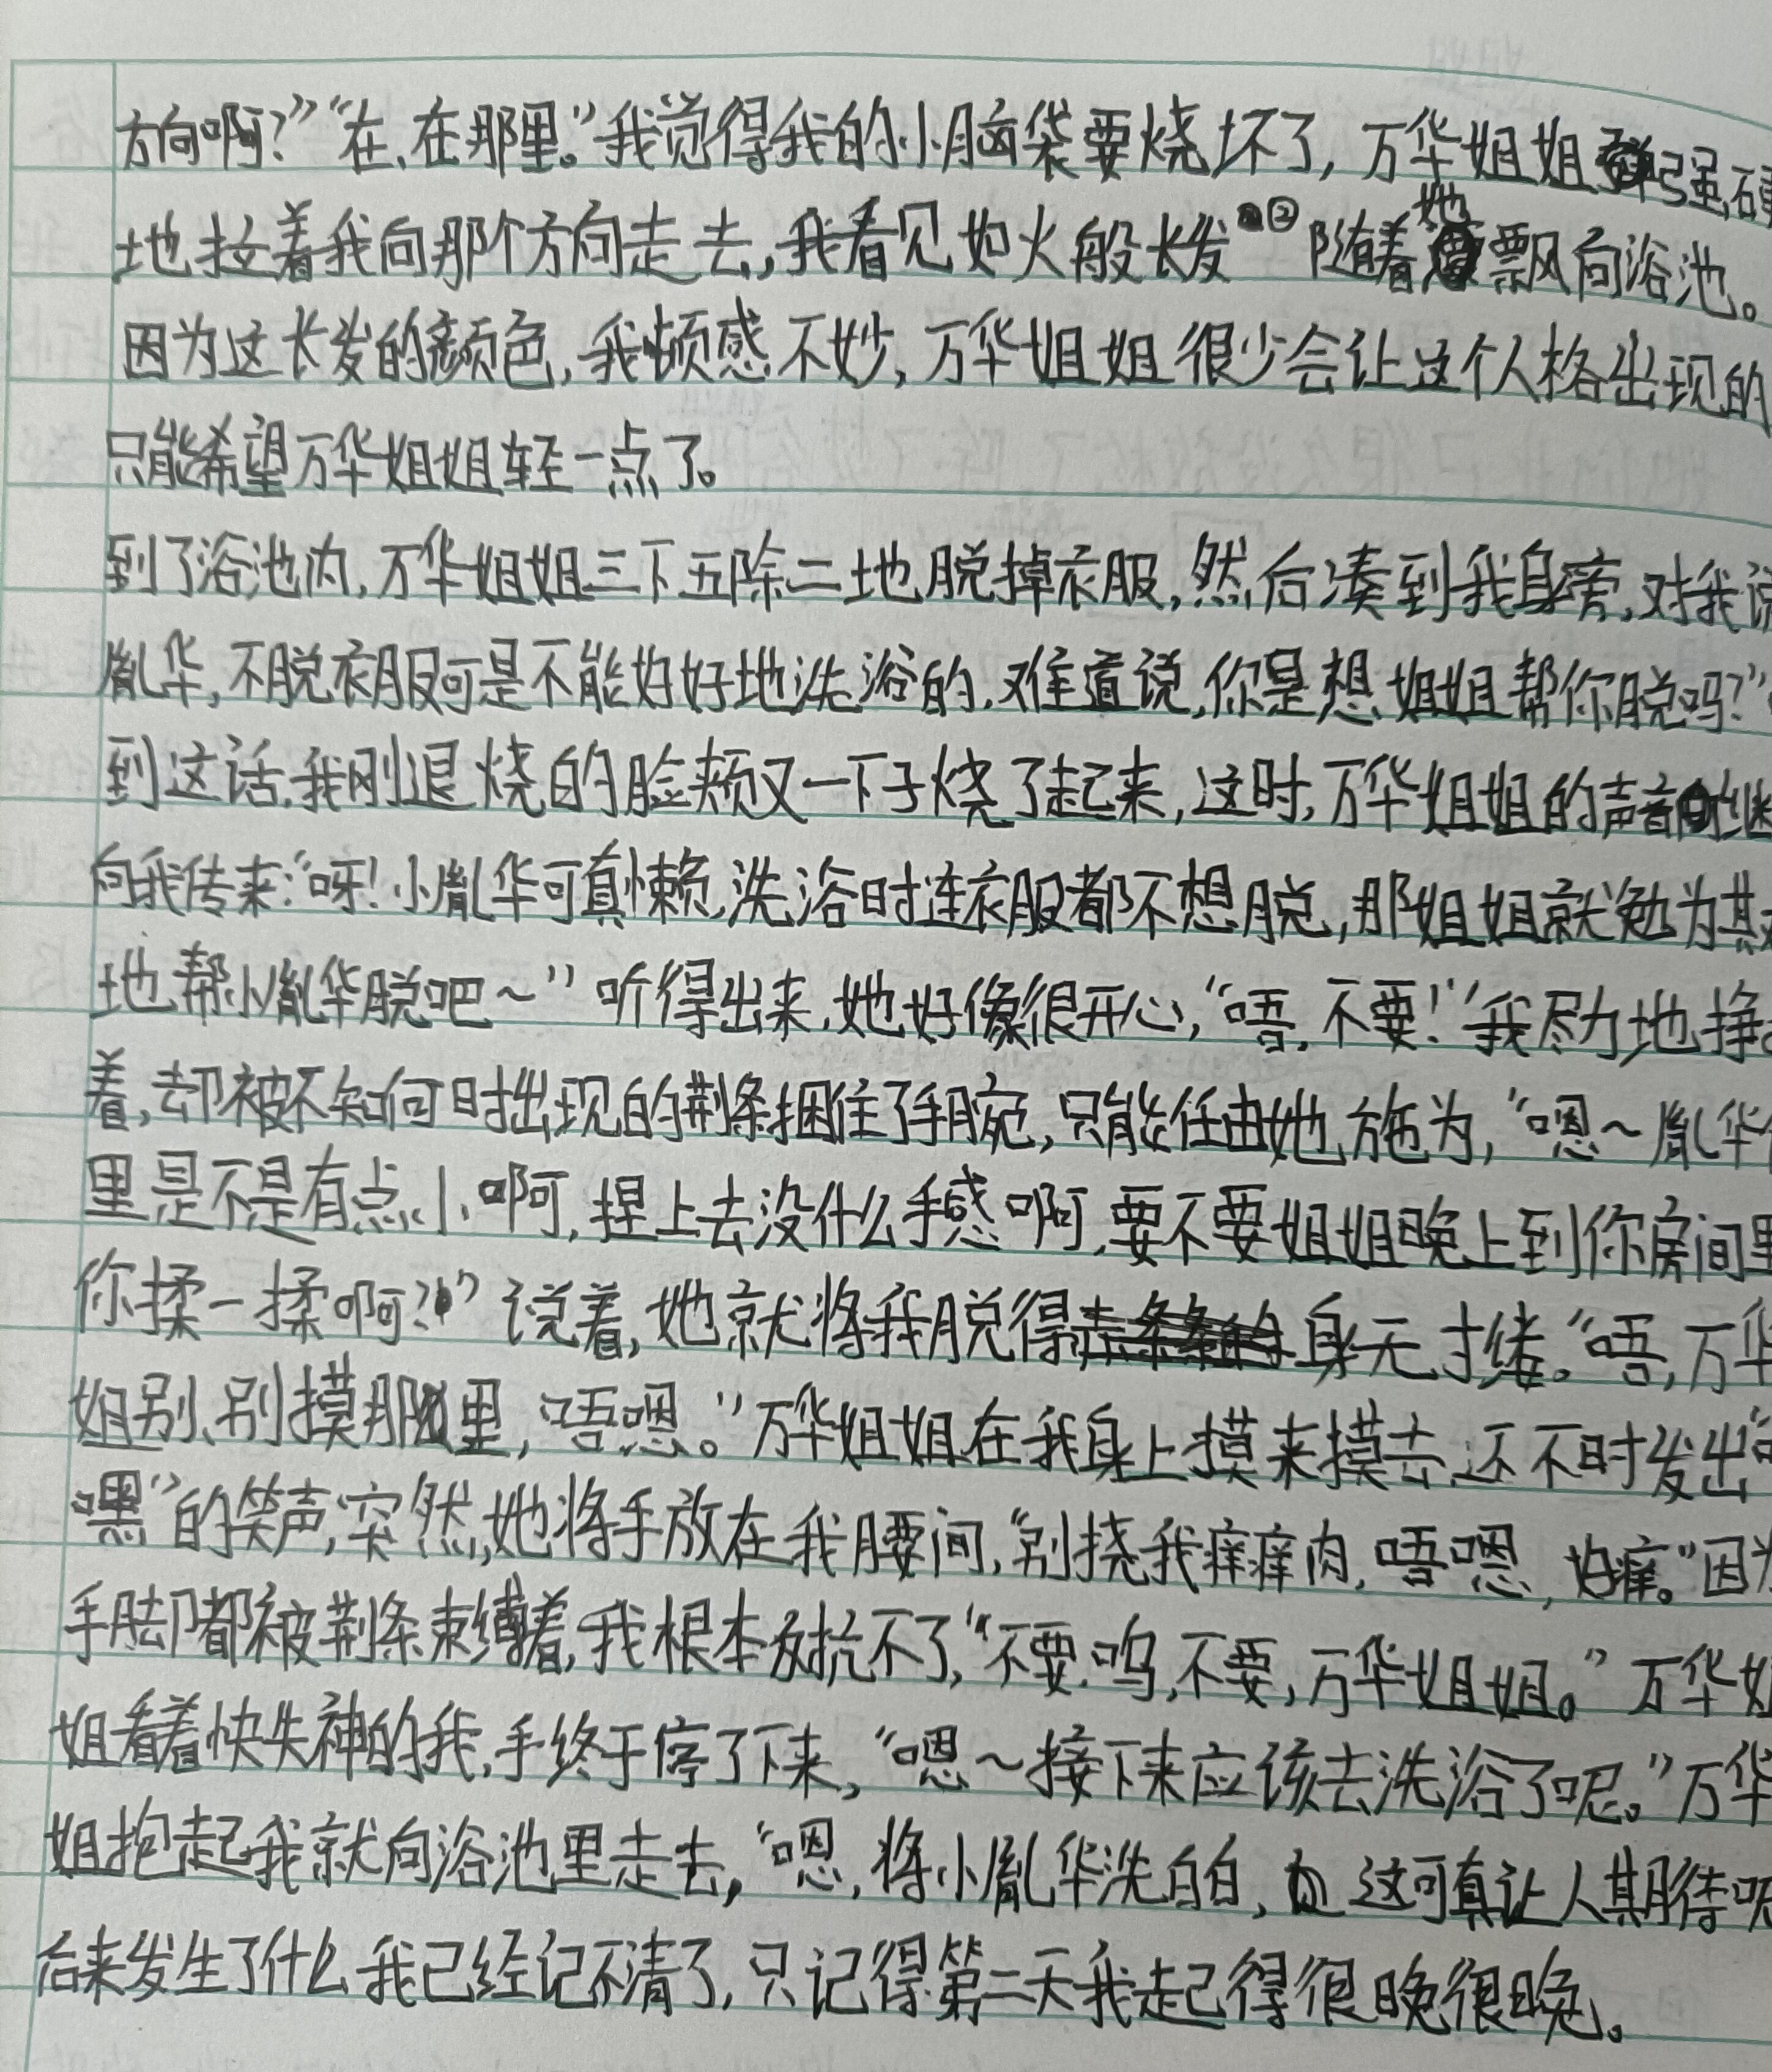 方向啊？”“在、在那里。”我觉得我的小脑袋要烧坏了，万华姐姐强硬
地拉着我向那个方向走去，我看见如火般长发②随着她飘向浴池。
因为这长发的颜色，我顿感不妙，万华姐姐很少会让这个人格出现的
只能希望万华姐姐轻一点了。
到了浴池内，万华姐姐三下五除二地脱掉衣服，然后凑到我身旁，对我说
胤华，不脱衣服可是不能好好地洗浴的，难道说，你是想姐姐帮你脱吗？”
到这话，我刚退烧的脸颊又一下子烧了起来，这时，万华姐姐的声音继
向我传来：“呀！小胤华可真懒，洗浴时连衣服都不想脱，那姐姐就勉为其
地帮小胤华脱吧～”听得出来，她好像很开心，“唔，不要！”我尽力地挣
着，却被不知何时出现的荆条捆住了手腕，只能任由她施为，“嗯～胤华
里是不是有点小啊，捏上去没什么手感啊，要不要姐姐晚上到你房间里
你揉一揉啊？”说着，她就将我脱得身无寸缕。“唔，万华
姐别、别摸那里，唔嗯。”万华姐姐在我身上摸来摸去，还不时发出“
嘿”的笑声，突然，她将手放在我腰间，“别挠我痒痒肉，唔嗯，好痒。”因为
手脚都被荆条束缚着，我根本反抗不了，“不要，呜，不要，万华姐姐。”万华
姐看着快失神的我，手终于停了下来，“嗯～接下来应该去洗浴了呢。”万华
姐抱起我就向浴池里走去，“嗯，将小胤华洗白白，这可真让人期待呢
后来发生了什么我已经记不清了，只记得第二天我起得很晚很晚。